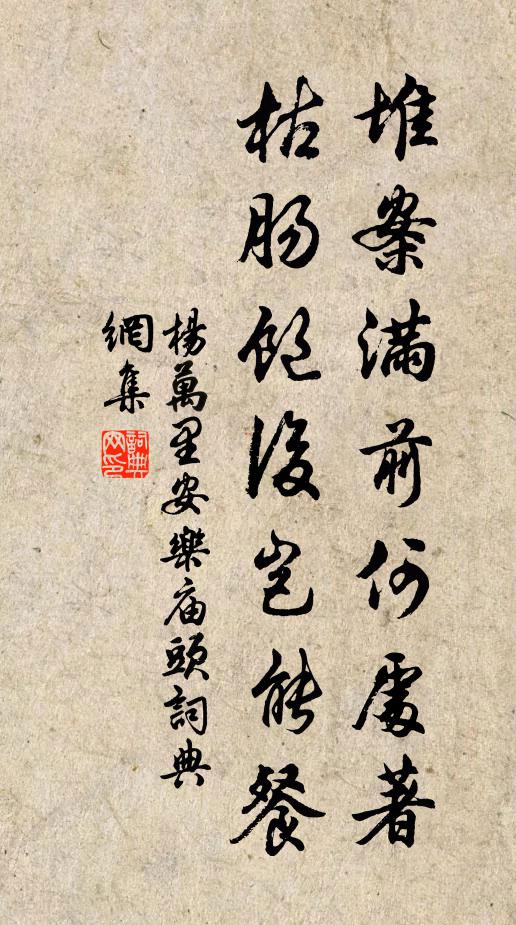 堆案滿前何處著
枯腸飽後豈能餐
楊萬里安樂庙頭詞典
網集
詞典
网印